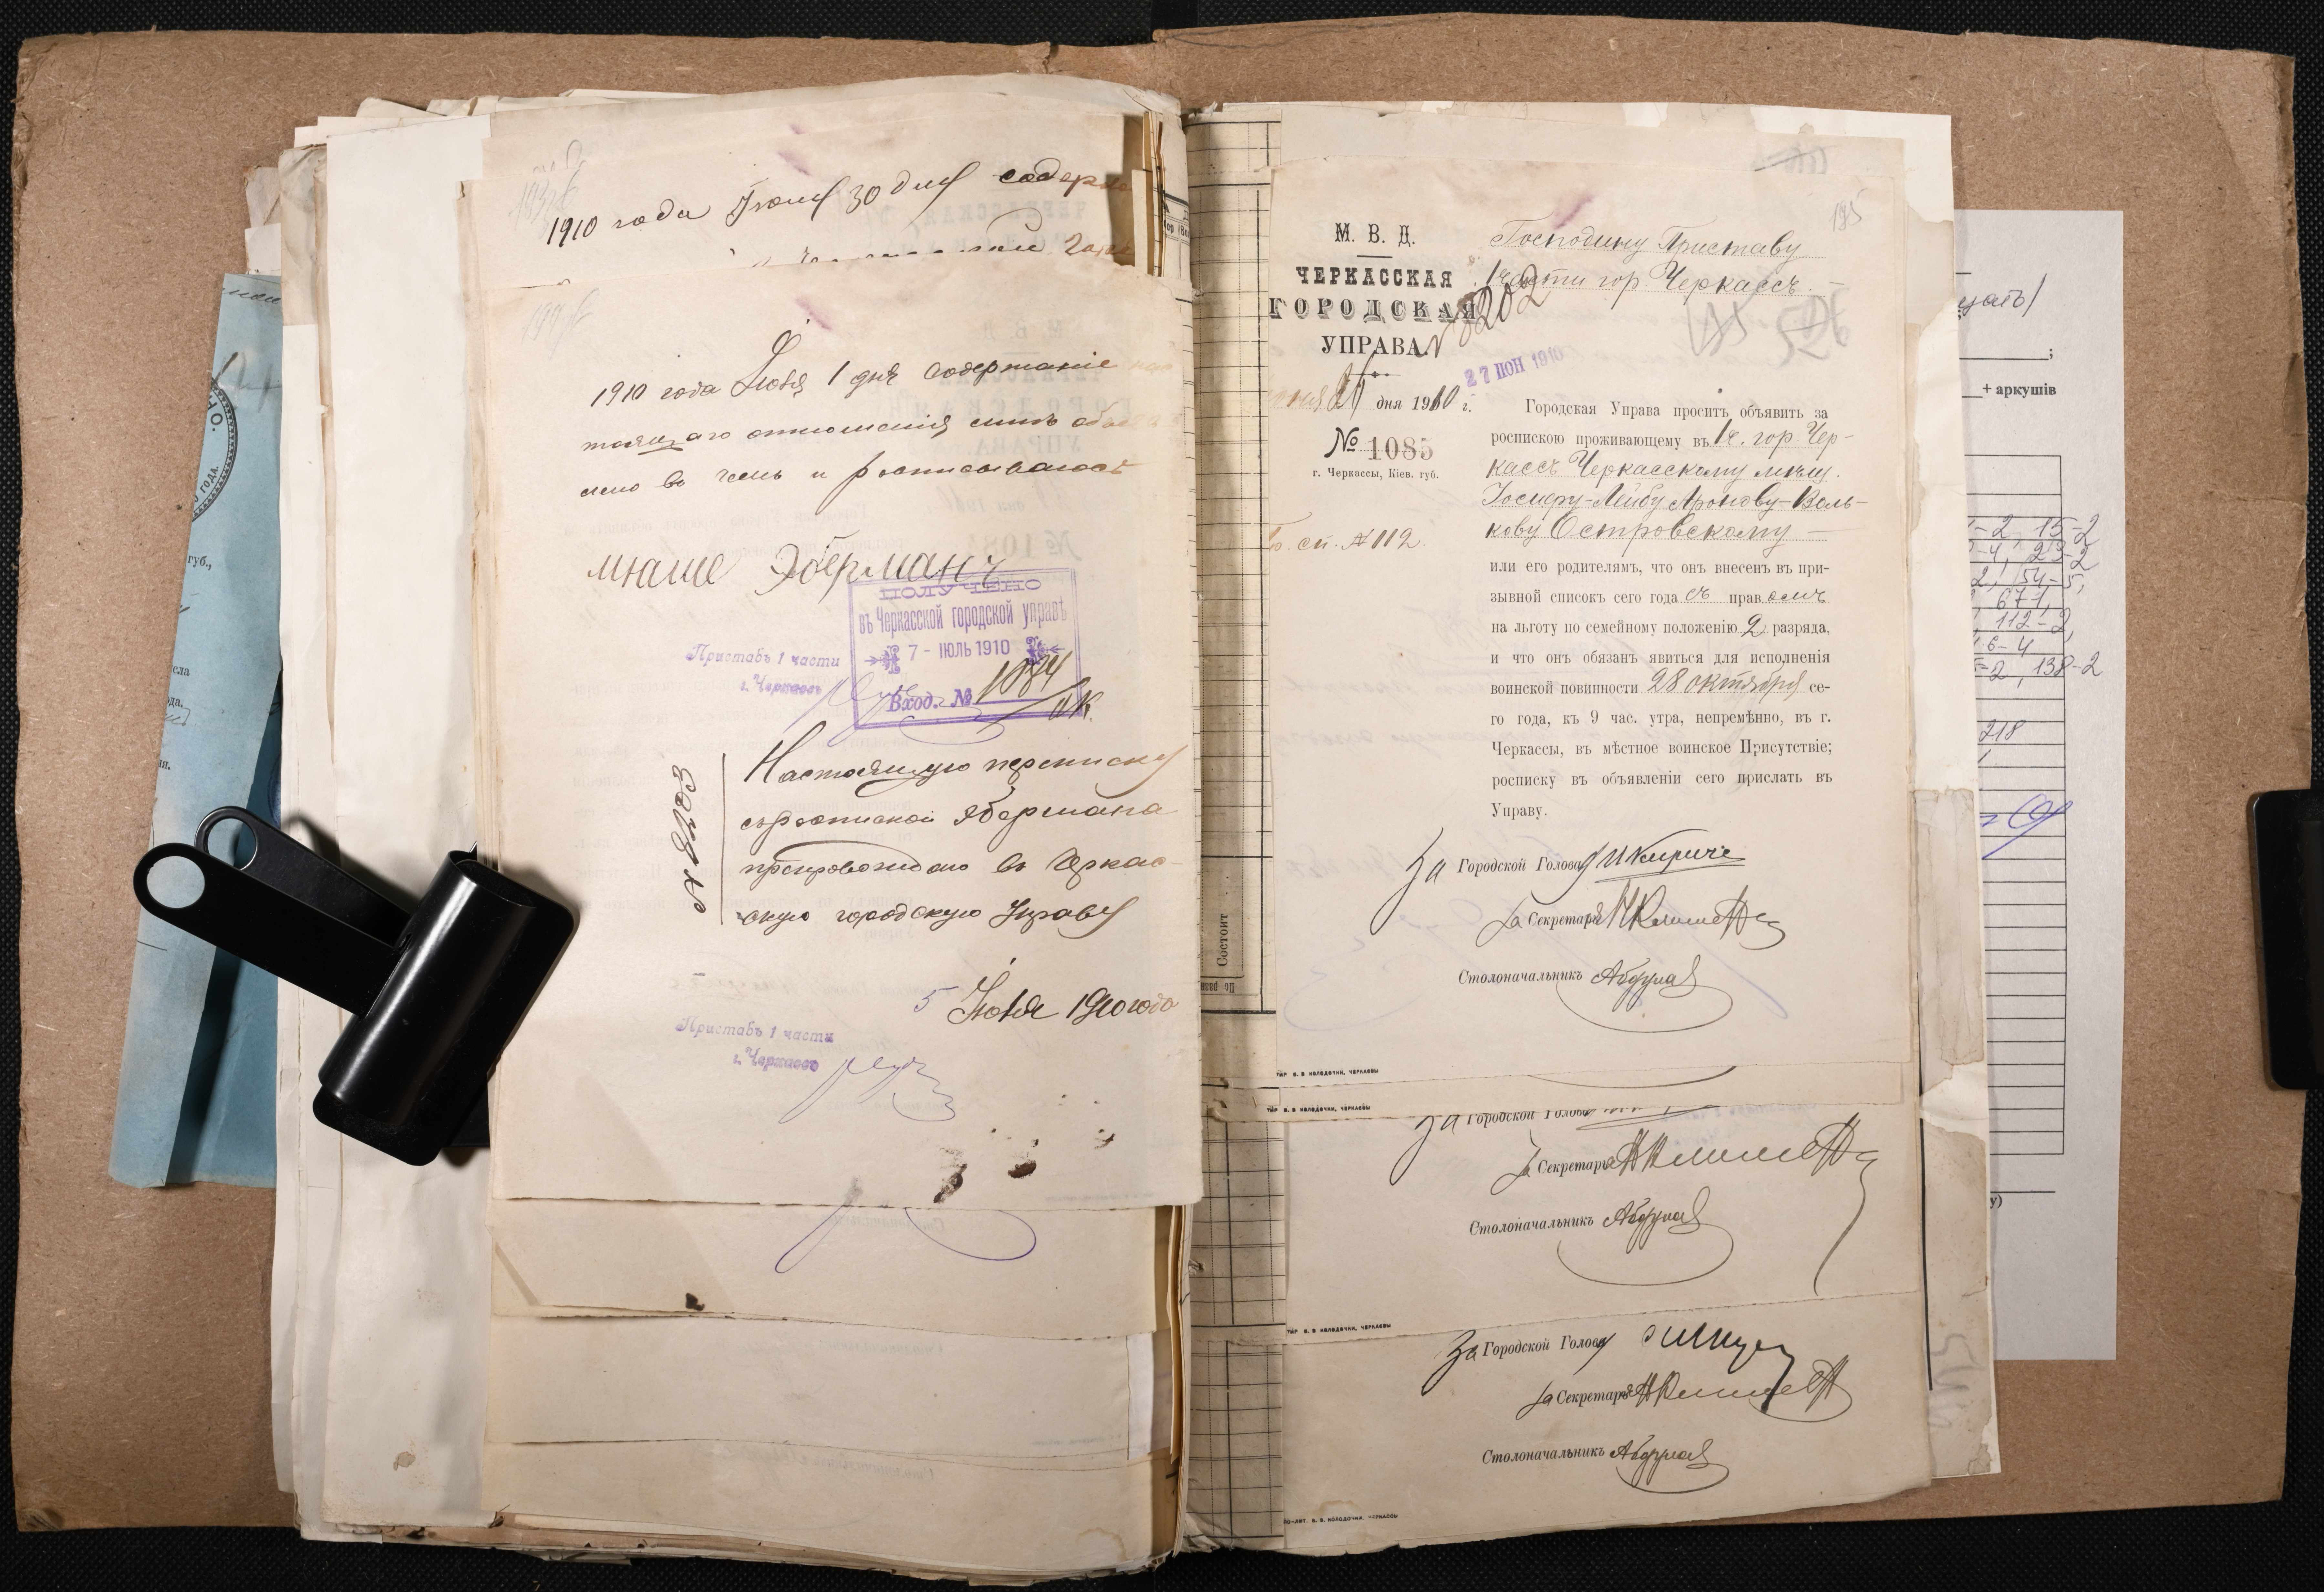 1910 года Іюня 30 дня содержа
1910 года Іюля 1 дня содержаніе
тоящаго отношенія мнѣ объя
лено въ чемъ и росписываюсь
Эберманъ
ПОЛУЧЕНО
въ Черкасской городской управѣ
7 - ІЮЛЬ 1910
Вход. № 1084
Приставъ 1 части
г. Черкассъ
Настоящую переписку
съ роспиской Эбермана
препровождаю въ Черкас-
скую городскую Управу
5 Іюля 1910 года
Приставъ 1 части
г. Черкассъ
195
М. В. Д.
ЧЕРКАССКАЯ
ГОРОДСКАЯ
УПРАВА.
дня 1910 г.
№ 1085
г. Черкассы, Кіев. губ.
сп. № 112.
Господину Приставу
1 части гор Черкассъ.
27 ІЮН 1910
Городская Управа проситъ объявить за
роспискою проживающему въ 1 ч. гор. Чер-
кассъ Черкасскому мѣщ.
Іосифу-Лейбу Аронову-Воль-
кову Островскому
или его родителямъ, что онъ внесенъ въ при-
зывной списокъ сего года съ правомъ
на льготу по семейному положенію 2 разряда,
и что онъ обязанъ явиться для исполненія
воинской повинности 28 октября се-
го года, къ 9 час. утра, непремѣнно, въ г.
Черкассы, въ мѣстное воинское Присутствіе;
росписку въ объявленіи сего прислать въ
Управу.
За Городской Голова
За Секретаря
Столоначальникъ
ТИР В. В КОЛОДОЧКИ, ЧЕРКАССЫ
ТИР В. В КОЛОДОЧКИ, ЧЕРКАССЫ
За Городской Голова
За Секретаря
Столоначальникъ
ТИР В. В КОЛОДОЧКИ, ЧЕРКАССЫ
За Городской Голова
За Секретаря
Столоначальникъ
ПО-ЛИТ. В. В. КОЛОДОЧКИ, ЧЕРКАССЫ
Состоит
губ.,
года.
+ аркушів
15-2
23-2
154-5,
671,
112-2,
6-4
138-2
218